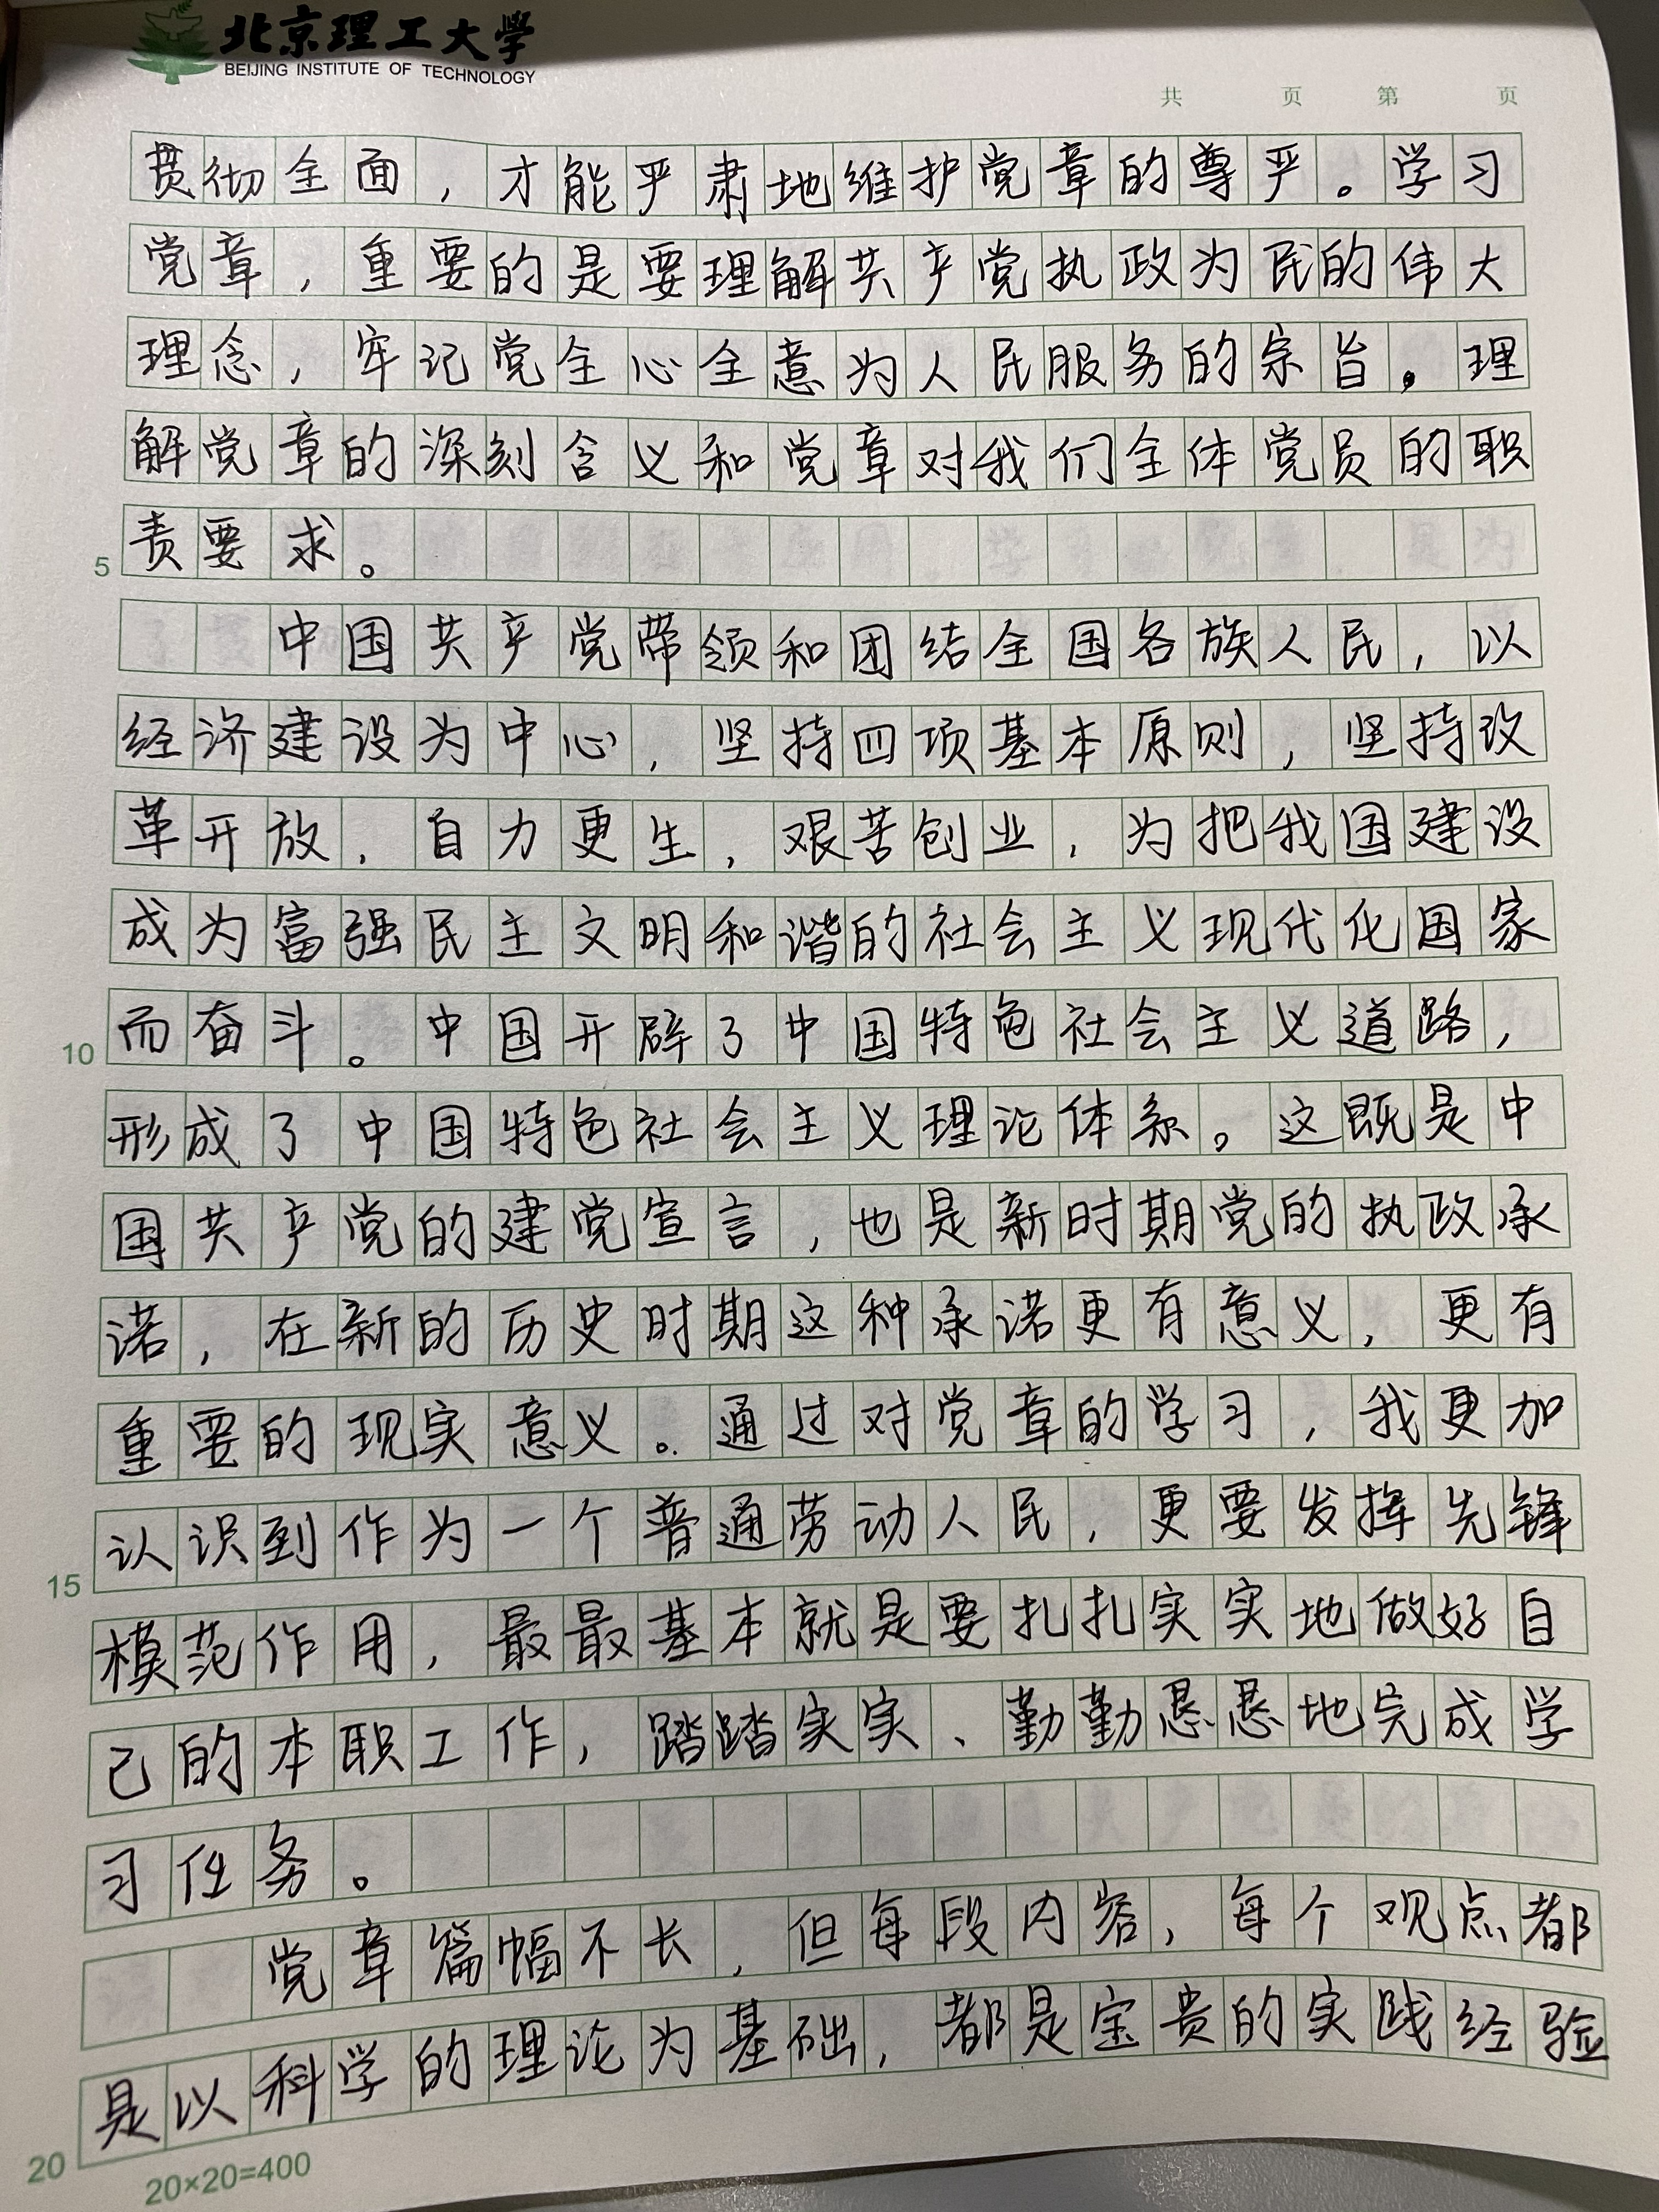 北京理工大学
BEIJING INSTITUTE OF TECHNOLOGY
共 页 第 页
贯彻全面，才能严肃地维护党章的尊严。学习
党章，重要的是要理解共产党执政为民的伟大
理念，牢记党全心全意为人民服务的宗旨。理
解党章的深刻含义和党章对我们全体党员的职
责要求。
5
中国共产党带领和团结全国各族人民，以
经济建设为中心，坚持四项基本原则，坚持改
革开放，自力更生，艰苦创业，为把我国建设
成为富强民主文明和谐的社会主义现代化国家
而奋斗。中国开辟了中国特色社会主义道路，
10
形成了中国特色社会主义理论体系。这既是中
国共产党的建党宣言，也是新时期党的执政承
诺，在新的历史时期这种承诺更有意义，更有
重要的现实意义。通过对党章的学习，我更加
认识到作为一个普通劳动人民，更要发挥先锋
15
模范作用，最最基本就是要扎扎实实地做好自
己的本职工作，踏踏实实、勤勤恳恳地完成学
习任务。
党章篇幅不长，但每段内容，每个观点都
是以科学的理论为基础，都是宝贵的实践经验
20
20×20=400